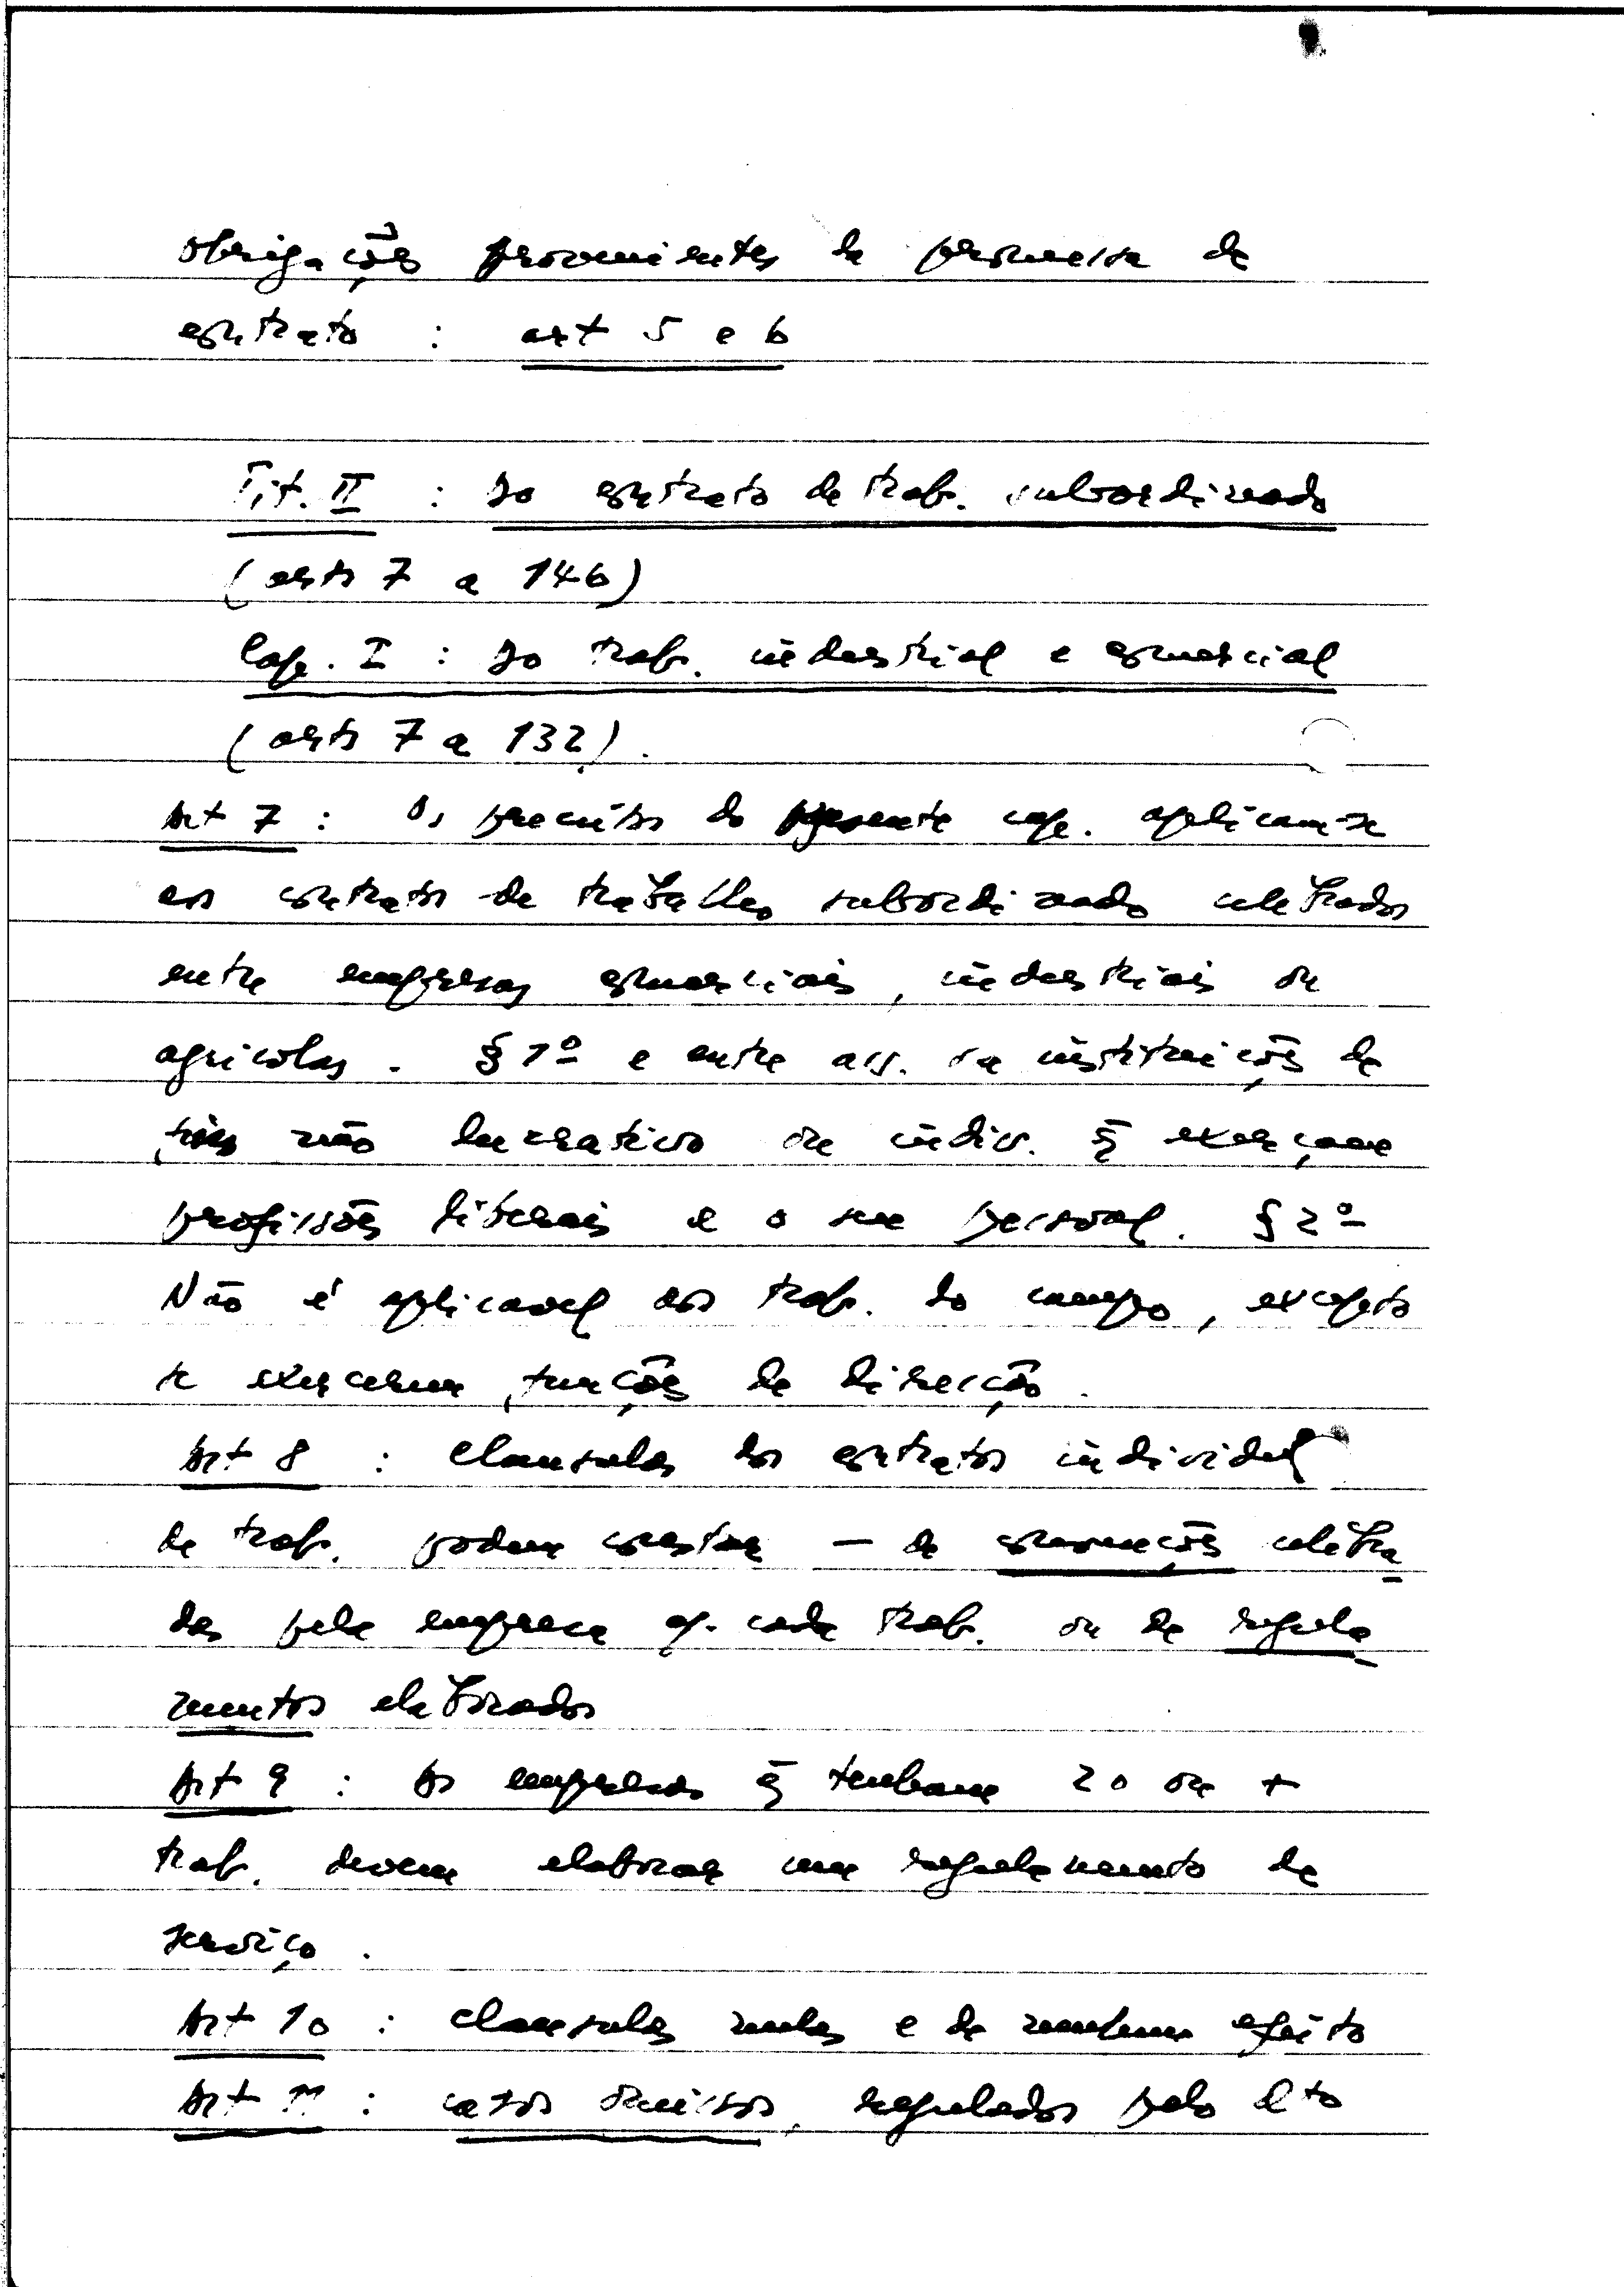 obrigações provenientes da promessa de
contrato : art 5 e 6
Tit. II : Do contrato de trab. subordinado
(arts 7 a 146)
Cap. I : Do trab. industrial e comercial
(arts 7 a 132).
Art 7 : Os preceitos do presente cap. aplicam-se
aos contratos de trabalho subordinado celebrados
entre empresas comerciais, industriais ou
agricolas. § 1º e entre ass. ou instituições de
fins não lucrativos ou indiv. q̃ exerçam
profissões liberais e o seu pessoal. § 2º
Não é aplicavel aos trab. do campo, excepto
se exercerem funções de direcção.
Art 8 : Clausulas dos contratos individ
de trab. podem constar – de convenções celebra_
das pela empresa c/. cada trab. ou de regula_
mentos elaborados
Art 9 : As empresas q̃ tenham 20 ou +
trab. devem elaborar um regulamento de
serviço.
Art 10 : Clausulas nulas e de nenhum efeito
Art 11 : casos omissos, regulados pelo dto